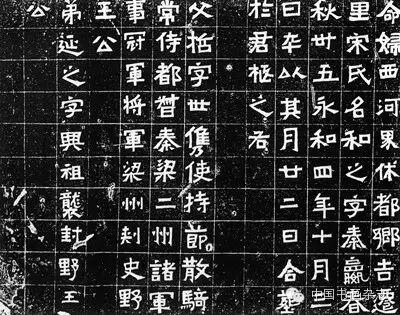 命婦西河界休都鄉吉遷
里宋氏名和之字秦嬴春
秋卅五永和四年十月三
日卒以其月廿二日合葬
於君柩之右
父哲字世儁使持節散騎
常侍都督秦梁二州諸軍
事冠軍將軍梁州刾史野
王公
弟延之字興祖襲封野王
公
中国书画杂志